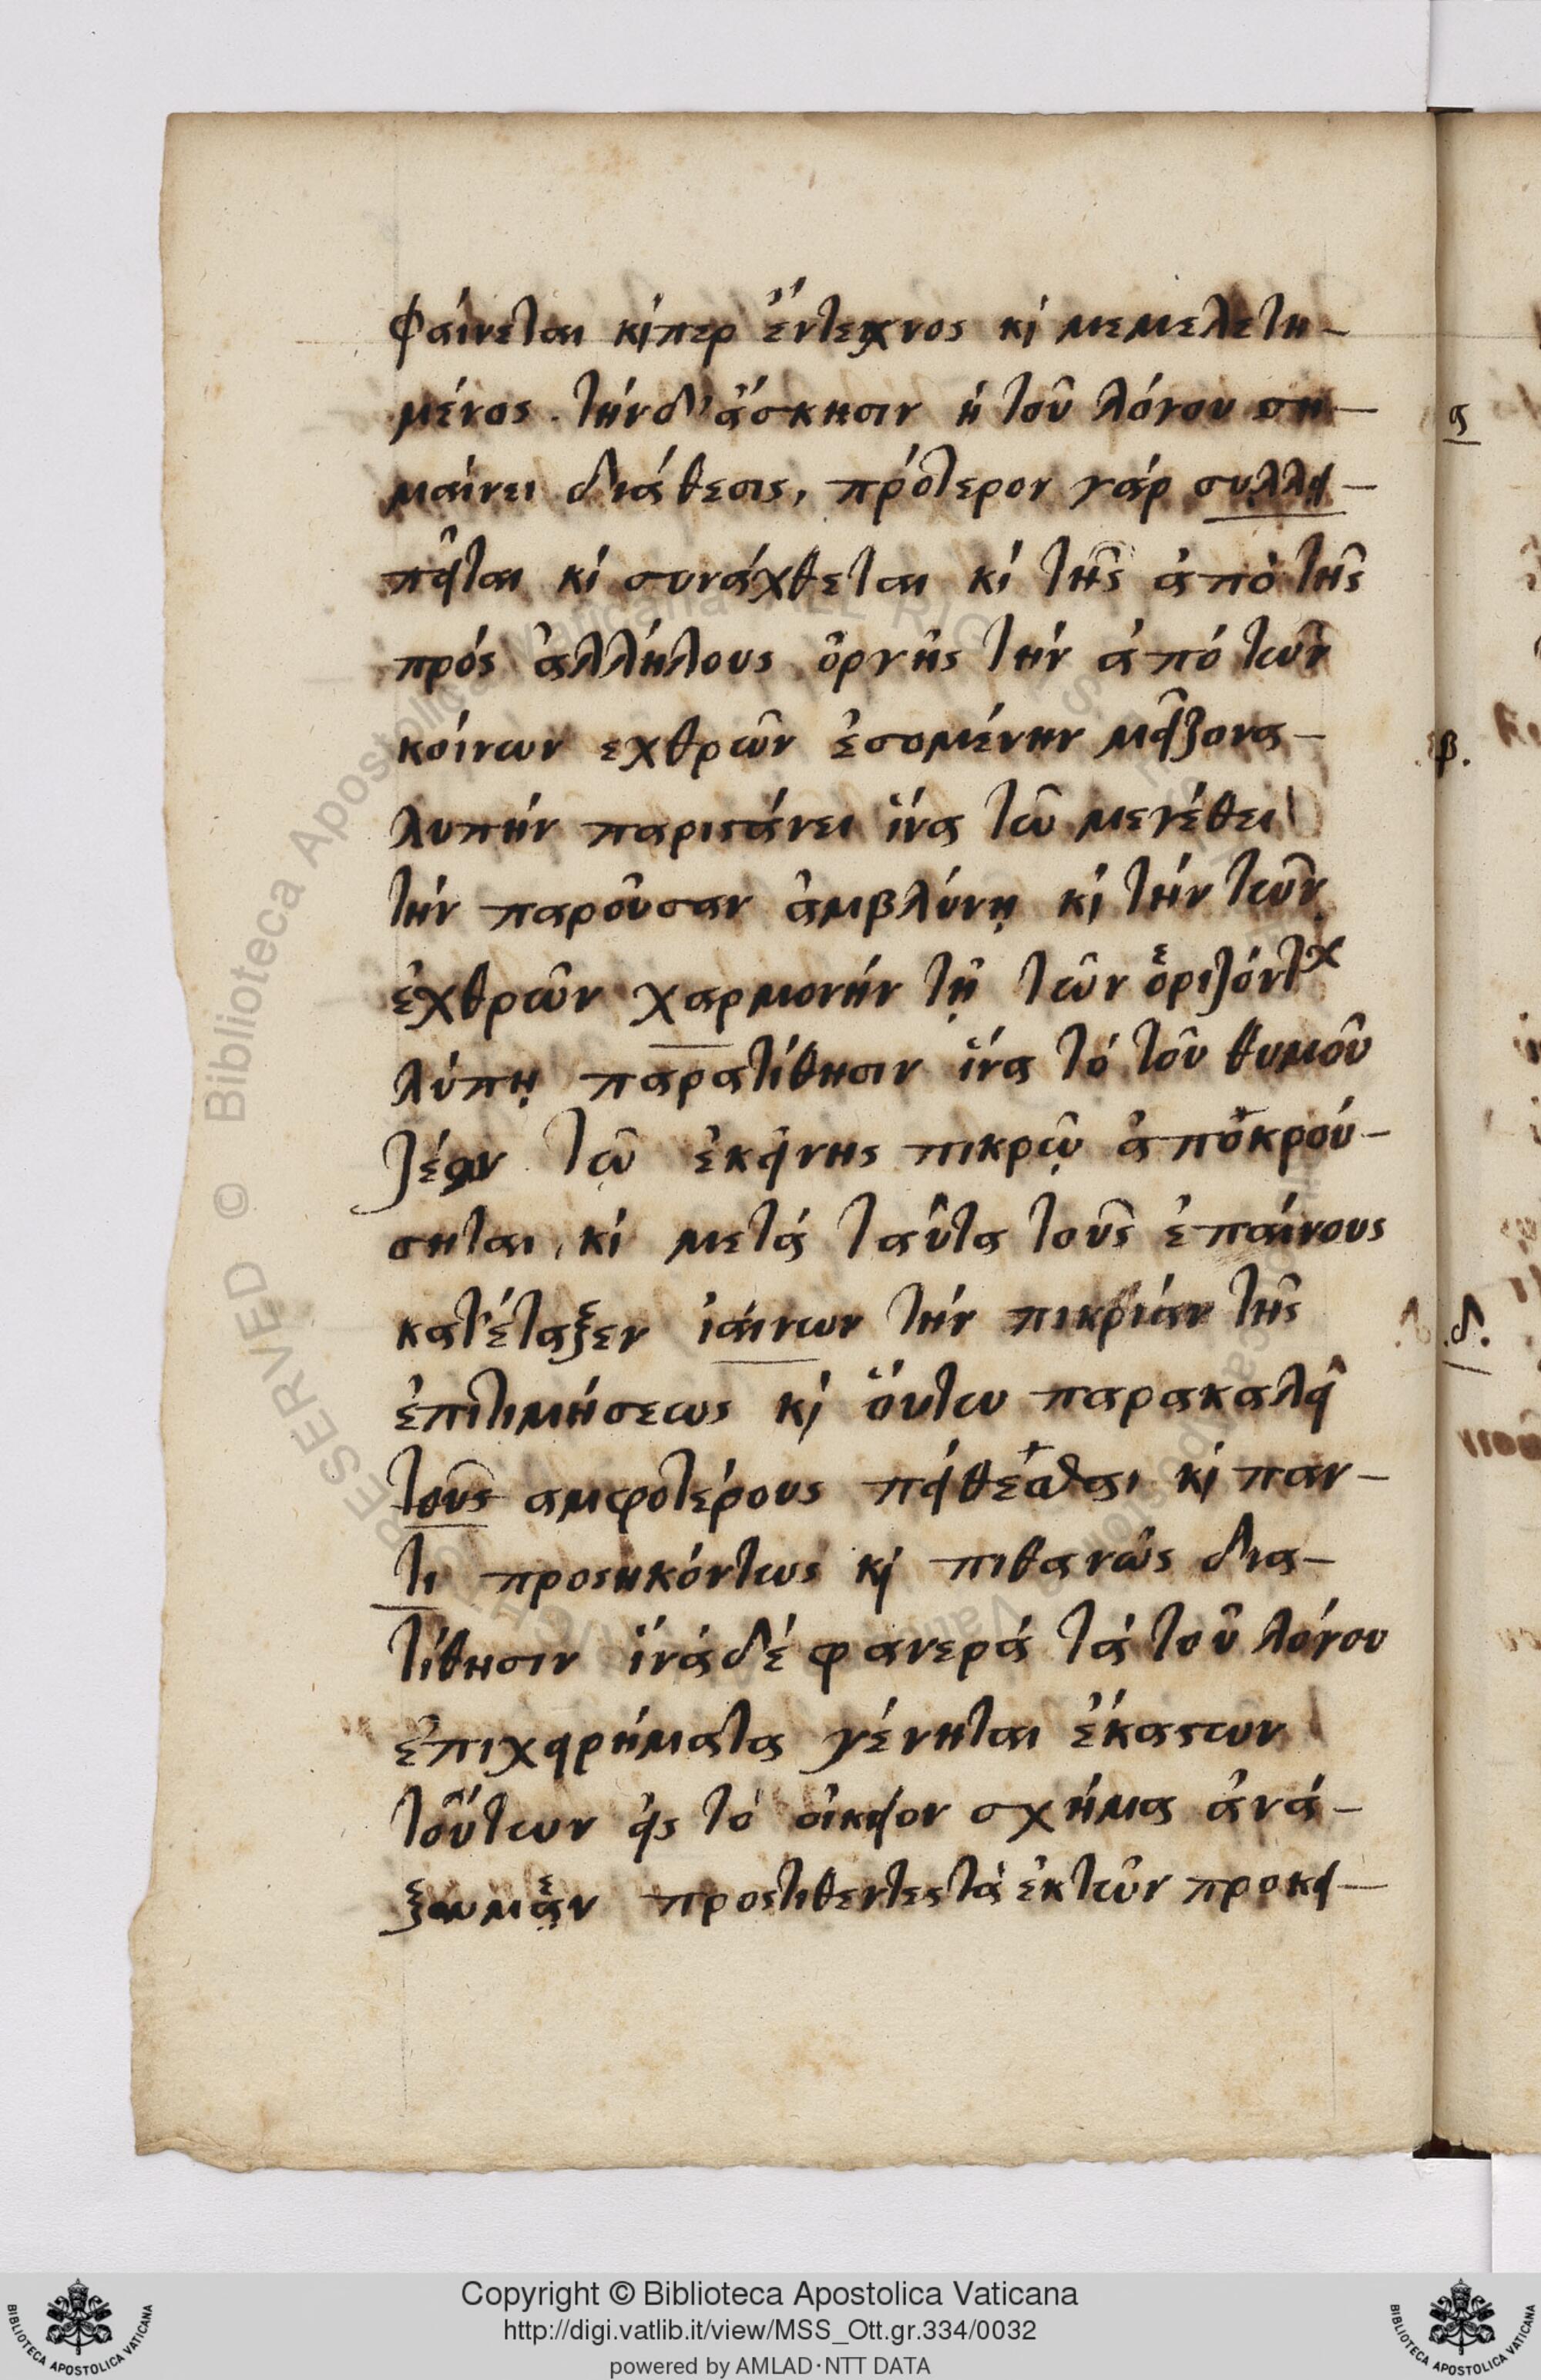 φαίνεται κίπερ ἔντεχνος κὶ μεμελετη-
μένος. τήνδ' ἄσκησιν ἡ τοῦ λόγου ση-
μαίνει διάθεσις, πρότερον γάρ συλλυ-
πεῖται κὶ συνάχθεται κὶ τῆς ἀπὸ τῆς
πρός ἀλλήλους ὀργῆς τήν ἀπό τῶν
κοίνων εχθρῶν ἐσομένην μείζονα-
λυπήν παριστάνει ἵνα τῶ μεγέθει
τήν παροῦσαν ἀμβλύνῃ κὶ τήν τῶν
ἐχθρῶν χαρμονήν τῇ τῶν
λύπῃ παρατίθησιν ἵνα τό τοῦ θυμοῦ
ζέον τῷ ἐκείνης πικρῷ ἀποκρού-
σηται, κὶ μετά ταῦτα τοῦς ἐπαίνους
κατέταξεν ἰαίνων τήν πικρίαν τῆς
ἐπιτιμήσεως κὶ ὅυτω παρακαλεῖ
τοῦς αμφοτέρους πείθεσθαι κὶ παν-
τι προσηκόντως κὶ πιθανῶς δια-
τίθησιν ἵνα δέ φανερά τά τοῦ λόγου
ἐπιχειρήματα γένηται ἑκαστων
τοῦτων εἰς τό οἰκεῖον σχήμα ἀνά-
ξουμεν προστιθεντες τὰ ἐκ τῶν προκει-
α
β.
δ.
Copyright © Biblioteca Apostolica Vaticana
http://digi.vatlib.it/view/MSS_Ott.gr.334/0032
powered by AMLAD·NTT DATA
BIBLIOTECA APOSTOLICA VATICANA
BIBLIOTECA APOSTOLICA VATICANA